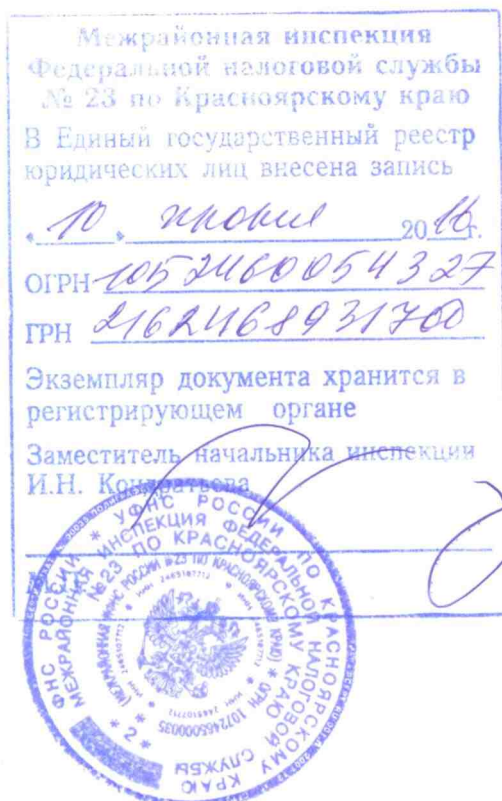 Межрайонная инспекция
Федеральной налоговой службы
№ 23 по Красноярскому краю
В Единый государственный реестр
юридических лиц внесена запись
"10" июня 2016г.
ОГРН 1052460054327
ГРН 2162468931700
Экземпляр документа хранится в
регистрирующем органе
Заместитель начальника инспекции
И.Н. Кондратьева
ФНС РОССИИ * УФНС РОССИИ ПО КРАСНОЯРСКОМУ КРАЮ
МЕЖРАЙОННАЯ ИНСПЕКЦИЯ ФЕДЕРАЛЬНОЙ НАЛОГОВОЙ СЛУЖБЫ
№23 ПО КРАСНОЯРСКОМУ КРАЮ
(МЕЖРАЙОННАЯ ИФНС РОССИИ №23 ПО КРАСНОЯРСКОМУ КРАЮ) * ОГРН 1072465000035
* ИНН 2465107712
* 2 *